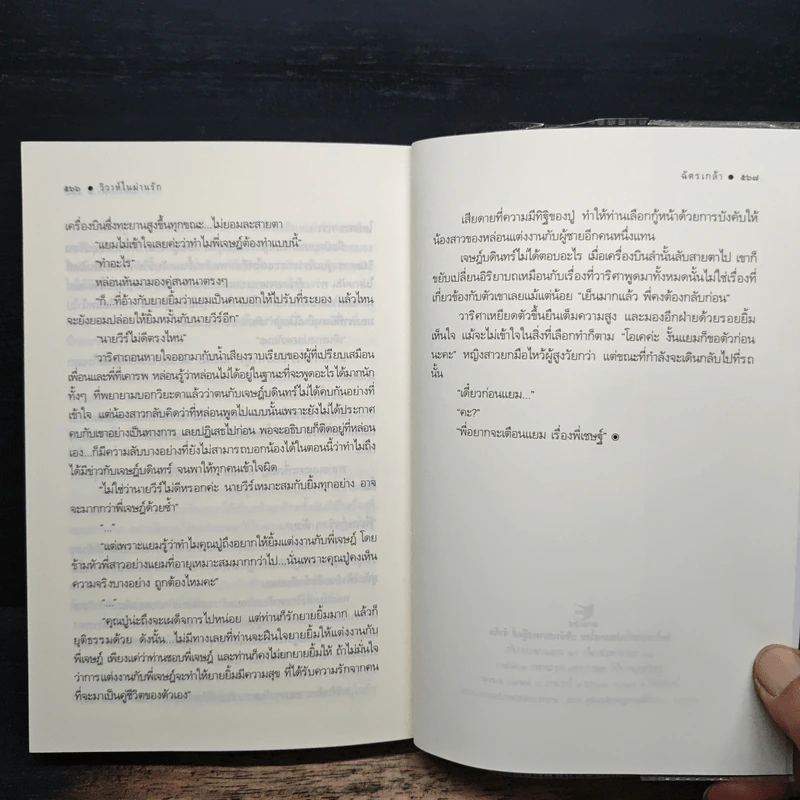 ๕๖๖ ● วิวาห์ในม่านรัก
เครื่องบินซึ่งทะยานสูงขึ้นทุกขณะ...ไม่ยอมละสายตา
"แยมไม่เข้าใจเลยค่ะว่าทำไมพี่เจษฎ์ต้องทำแบบนี้"
"ทำอะไร"
หล่อนหันมามองคู่สนทนาตรงๆ
"ก็...ที่อ้างกับยายยิ้มว่าแยมเป็นคนบอกให้ไปรับที่ระยอง แล้วไหน
จะยังยอมปล่อยให้ยิ้มหมั้นกับนายวีร์อีก"
"นายวีร์ไม่ดีตรงไหน"
วาริศาถอนหายใจออกมากับน้ำเสียงราบเรียบของผู้ที่เปรียบเสมือน
เพื่อนและพี่ที่เคารพ หล่อนรู้ว่าหล่อนไม่ได้อยู่ในฐานะที่จะพูดอะไรได้มากนัก
ทั้งๆ ที่พยายามบอกวิยะดาแล้วว่าตนกับเจษฎ์บดินทร์ไม่ได้คบกันอย่างที่
เข้าใจ แต่น้องสาวกลับคิดว่าที่หล่อนพูดไปแบบนั้นเพราะยังไม่ได้ประกาศ
คบกับเขาอย่างเป็นทางการ เลยปฏิเสธไปก่อน พอจะอธิบายก็ติดอยู่ที่หล่อน
เอง...ก็มีความลับบางอย่างที่ยังไม่สามารถบอกน้องได้ในตอนนี้ว่าทำไมถึง
ได้มีข่าวกับเจษฎ์บดินทร์ จนพาให้ทุกคนเข้าใจผิด
"ไม่ใช่ว่านายวีร์ไม่ดีหรอกค่ะ นายวีร์เหมาะสมกับยิ้มทุกอย่าง อาจ
จะมากกว่าพี่เจษฎ์ด้วยซ้ำ"
"..."
"แต่เพราะแยมรู้ว่าทำไมคุณปู่ถึงอยากให้ยิ้มแต่งงานกับพี่เจษฎ์ โดย
ข้ามหัวพี่สาวอย่างแยมที่อายุเหมาะสมมากกว่าไป...นั่นเพราะคุณปู่คงเห็น
ความจริงบางอย่าง ถูกต้องไหมคะ"
"..."
"คุณปู่น่ะถึงจะเผด็จการไปหน่อย แต่ท่านก็รักยายยิ้มมาก แล้วก็
ยุติธรรมด้วย ดังนั้น...ไม่มีทางเลยที่ท่านจะฝืนใจยายยิ้มให้แต่งงานกับ
พี่เจษฎ์ เพียงแค่ว่าท่านชอบพี่เจษฎ์ และท่านก็คงไม่ยกยายยิ้มให้ ถ้าไม่มั่นใจ
ว่าการแต่งงานกับพี่เจษฎ์จะทำให้ยายยิ้มมีความสุข ที่ได้รับความรักจากคน
ที่จะมาเป็นคู่ชีวิตของตัวเอง"
ฉัตรเกล้า ● ๕๖๗
เสียดายที่ความมีทิฐิของปู่ ทำให้ท่านเลือกกู้หน้าด้วยการบังคับให้
น้องสาวของหล่อนแต่งงานกับผู้ชายอีกคนหนึ่งแทน
เจษฎ์บดินทร์ไม่ได้ตอบอะไร เมื่อเครื่องบินลำนั้นลับสายตาไป เขาก็
ขยับเปลี่ยนอิริยาบถเหมือนกับเรื่องที่วาริศาพูดมาทั้งหมดนั้นไม่ใช่เรื่องที่
เกี่ยวข้องกับตัวเขาเลยแม้แต่น้อย "เย็นมากแล้ว พี่คงต้องกลับก่อน"
วาริศาเหยียดตัวขึ้นยืนเต็มความสูง และมองอีกฝ่ายด้วยรอยยิ้ม
เห็นใจ แม้จะไม่เข้าใจในสิ่งที่เลือกทำก็ตาม "โอเคค่ะ งั้นแยมก็ขอตัวก่อน
นะคะ" หญิงสาวยกมือไหว้ผู้สูงวัยกว่า แต่ขณะที่กำลังจะเดินกลับไปที่รถ
นั้น
"เดี๋ยวก่อนแยม..."
"คะ?"
"พี่อยากจะเตือนแยม เรื่องพี่เชษฐ์" ◉